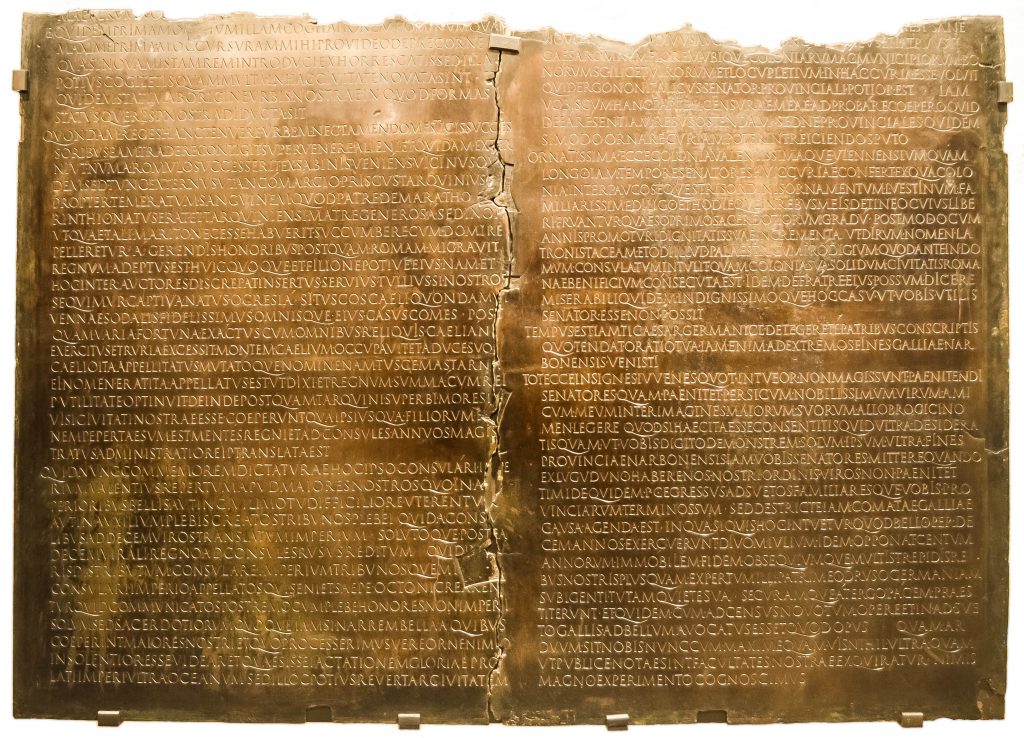 EQVIDEM PRIMAM OMNIVM ILLAM COGITATIONEM HOMINVM QVAM
MAXIME PRIMAM OCCVRSVRAM MIHI PROVIDEO DEPRECOR NE
QVASI NOVAM ISTAM REM INTRODVCI EXHORRESCATIS SED ILLA
POTIVS COGITETIS QVAM MVLTA IN HAC CIVITATE NOVATA SINT ET
QVIDEM STATIM AB ORIGINE VRBIS NOSTRAE IN QVOD FORMAS
STATVSQVE RES P NOSTRA DIDVCTA SIT
QVONDAM REGES HANC TENVERE VRBEM NEC TAMEN DOMESTICIS SVCCES
SORIBVS EAM TRADERE CONTIGIT SVPERVENERE ALIENI ET QVIDAM EXTER
NI VT NVMA ROMVLO SVCCESSERIT EX SABINIS VENIENS VICINVS QVI
DEM SED TVNC EXTERNVS VT ANCO MARCIO PRISCVS TARQVINIVS
PROPTER TEMERATVM SANGVINEM QVOD PATRE DEMARATHO CO
RINTHIO NATVS ERAT ET TARQVINIENSI MATRE GENEROSA SED INOPI
VT QVAE TALI MARITO NECESSE HABVERIT SVCCVMBERE CVM DOMI RE
PELLERETVR A GERENDIS HONORIBVS POSTQVAM ROMAM MIGRAVIT
REGNVM ADEPTVS EST HVIC QVOQVE ET FILIO NEPOTIVE EIVS NAM ET
HOC INTER AVCTORES DISCREPAT INSERTVS SERVIVS TVLLIVS SI NOSTROS
SEQVIMVR CAPTIVA NATVS OCRESIA SI TVSCOS CAELI QVONDAM VI
VENNAE SODALIS FIDELISSIMVS OMNISQVE EIVS CASVS COMES POST
QVAM VARIA FORTVNA EXACTVS CVM OMNIBVS RELIQVIS CAELIANI
EXERCITVS ETRVRIA EXCESSIT MONTEM CAELIVM OCCVPAVIT ET A DVCE SVO
CAELIO ITA APPELLITATVS MVTATOQVE NOMINE NAM TVSCE MASTARNA
EI NOMEN ERAT ITA APPELLATVS EST VT DIXI ET REGNVM SVMMA CVM REI
P VTILITATE OPTINVIT DEINDE POSTQVAM TARQVINI SVPERBI MORES IN
VISI CIVITATI NOSTRAE ESSE COEPERVNT QVA IPSIVS QVA FILIORVM EIVS
NEMPE PERTAESVM EST MENTES REGNI ET AD CONSVLES ANNVOS MAGIS
TRATVS ADMINISTRATIO REI P TRANSLATA EST
QVID NVNC COMMEMOREM DICTATVRAE HOC IPSO CONSVLARI IMPE
RIVM VALENTIVS REPERTVM APVD MAIORES NOSTROS QVO IN AS
PERIORIBVS BELLIS AVT IN CIVILI MOTV DIFFICILIORE VTERENTVR
AVT IN AVXILIVM PLEBIS CREATOS TRIBVNOS PLEBEI QVID A CONSV
LIBVS AD DECEMVIROS TRANSLATVM IMPERIVM SOLVTOQVE POSTEA
DECEMVIRALI REGNO AD CONSVLES RVSVS REDITVM QVID IN
PLVRIS DISTRIBVTVM CONSVLARE IMPERIVM TRIBVNOSQVE MILITVM
CONSVLARI IMPERIO APPELLATOS QVI SENI ET SAEPE OCTONI CREAREN
TVR QVID COMMVNICATOS POSTREMO CVM PLEBE HONORES NON IMPERI
SOLVM SED SACERDOTIORVM QVOQVE IAM SI NARREM BELLA A QVIBVS
COEPERINT MAIORES NOSTRI ET QVO PROCESSERIMVS VEREOR NE NIMIO
INSOLENTIOR ESSE VIDEAR ET QVAESISSE IACTATIONEM GLORIAE PRO
LATI IMPERI VLTRA OCEANVM SED ILLOC POTIVS REVERTAR CIVITATEM
CAESAR OMNEM FLOREM VBIQVE COLONIARVM AC MVNICIPIORVM BO
NORVM SCILICET VIRORVM ET LOCVPLETIVM IN HAC CVRIA ESSE VOLVIT
QVID ERGO NON ITALICVS SENATOR PROVINCIALI POTIOR EST IAM
VOBIS CVM HANC PARTEM CENSVRAE MEAE ADPROBARE COEPERO QVID
DE EA RE SENTIAM REBVS OSTENDAM SED NE PROVINCIALES QVIDEM
SI MODO ORNARE CVRIAM POTERINT REICIENDOS PVTO
ORNATISSIMA ECCE COLONIA VALENTISSIMAQVE VIENNENSIVM QVAM
LONGO IAM TEMPORE SENATORES HVIC CVRIAE CONFERT EX QVA COLO
NIA INTER PAVCOS EQVESTRIS ORDINIS ORNAMENTVM L VESTINVM FA
MILIARISSIME DILIGO ET HODIEQVE IN REBVS MEIS DETINEO CVIVS LIBE
RI FRVANTVR QVAESO PRIMO SACERDOTIORVM GRADV POST MODO CVM
ANNIS PROMOTVRI DIGNITATIS SVAE INCREMENTA VT DIRVM NOMEN LA
TRONIS TACEAM ET ODI ILLVD PALAESTRICVM PRODIGIVM QVOD ANTE IN DO
MVM CONSVLATVM INTVLIT QVAM COLONIA SVA SOLIDVM CIVITATIS ROMA
NAE BENIFICIVM CONSECVTA EST IDEM DE FRATRE EIVS POSSVM DICERE
MISERABILI QVIDEM INDIGNISSIMOQVE HOC CASV VT VOBIS VTILIS
SENATOR ESSE NON POSSIT
TEMPVS EST IAM TI CAESAR GERMANICE DETEGERE TE PATRIBVS CONSCRIPTIS
QVO TENDAT ORATIO TVA IAM ENIM AD EXTREMOS FINES GALLIAE NAR
BONENSIS VENISTI
TOT ECCE INSIGNES IVVENES QVOT INTVEOR NON MAGIS SVNT PAENITENDI
SENATORES QVAM PAENITET PERSICVM NOBILISSIMVM VIRVM AMI
CVM MEVM INTER IMAGINES MAIORVM SVORVM ALLOBROGICI NO
MEN LEGERE QVOD SI HAEC ITA ESSE CONSENTITIS QVID VLTRA DESIDERA
TIS QVAM VT VOBIS DIGITO DEMONSTREM SOLVM IPSVM VLTRA FINES
PROVINCIAE NARBONENSIS IAM VOBIS SENATORES MITTERE QVANDO
EX LVGVDVNO HABERE NOS NOSTRI ORDINIS VIROS NON PAENITET
TIMIDE QVIDEM P C EGRESSVS ADSVETOS FAMILIARESQVE VOBIS PRO
VINCIARVM TERMINOS SVM SED DESTRICTE IAM COMATAE GALLIAE
CAVSA AGENDA EST IN QVA SI QVIS HOC INTVETVR QVOD BELLO PER DE
CEM ANNOS EXERCVERVNT DIVOM IVLIVM IDEM OPPONAT CENTVM
ANNORVM IMMOBILEM FIDEM OBSEQVIVMQVE MVLTIS TREPIDIS RE
BVS NOSTRIS PLVS QVAM EXPERTVM ILLI PATRI MEO DRVSO GERMANIAM
SVBIGENTI TVTAM QVIETE SVA SECVRAMQVE A TERGO PACEM PRAES
TITERVNT ET QVIDEM CVM AD CENSVS NOVO TVM OPERE ET INADSVE
TO GALLIS AD BELLVM AVOCATVS ESSET QVOD OPVS QVAM AR
DVVM SIT NOBIS NVNC CVM MAXIME QVAMVIS NIHIL VLTRA QVAM
VT PVBLICE NOTAE SINT FACVLTATES NOSTRAE EXQVIRATVR NIMIS
MAGNO EXPERIMENTO COGNOSCIMVS